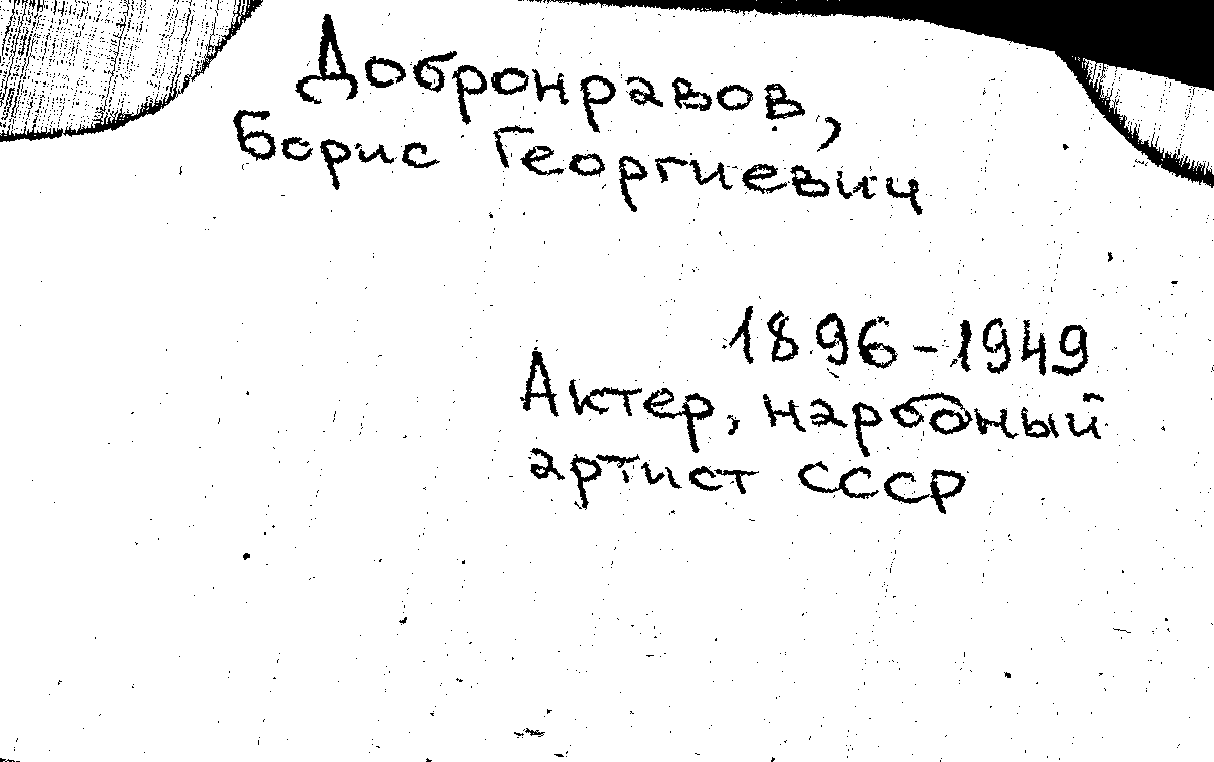 Добронравов,
Борис Георгиевич
1896-1949
Актер, народный
артист СССР